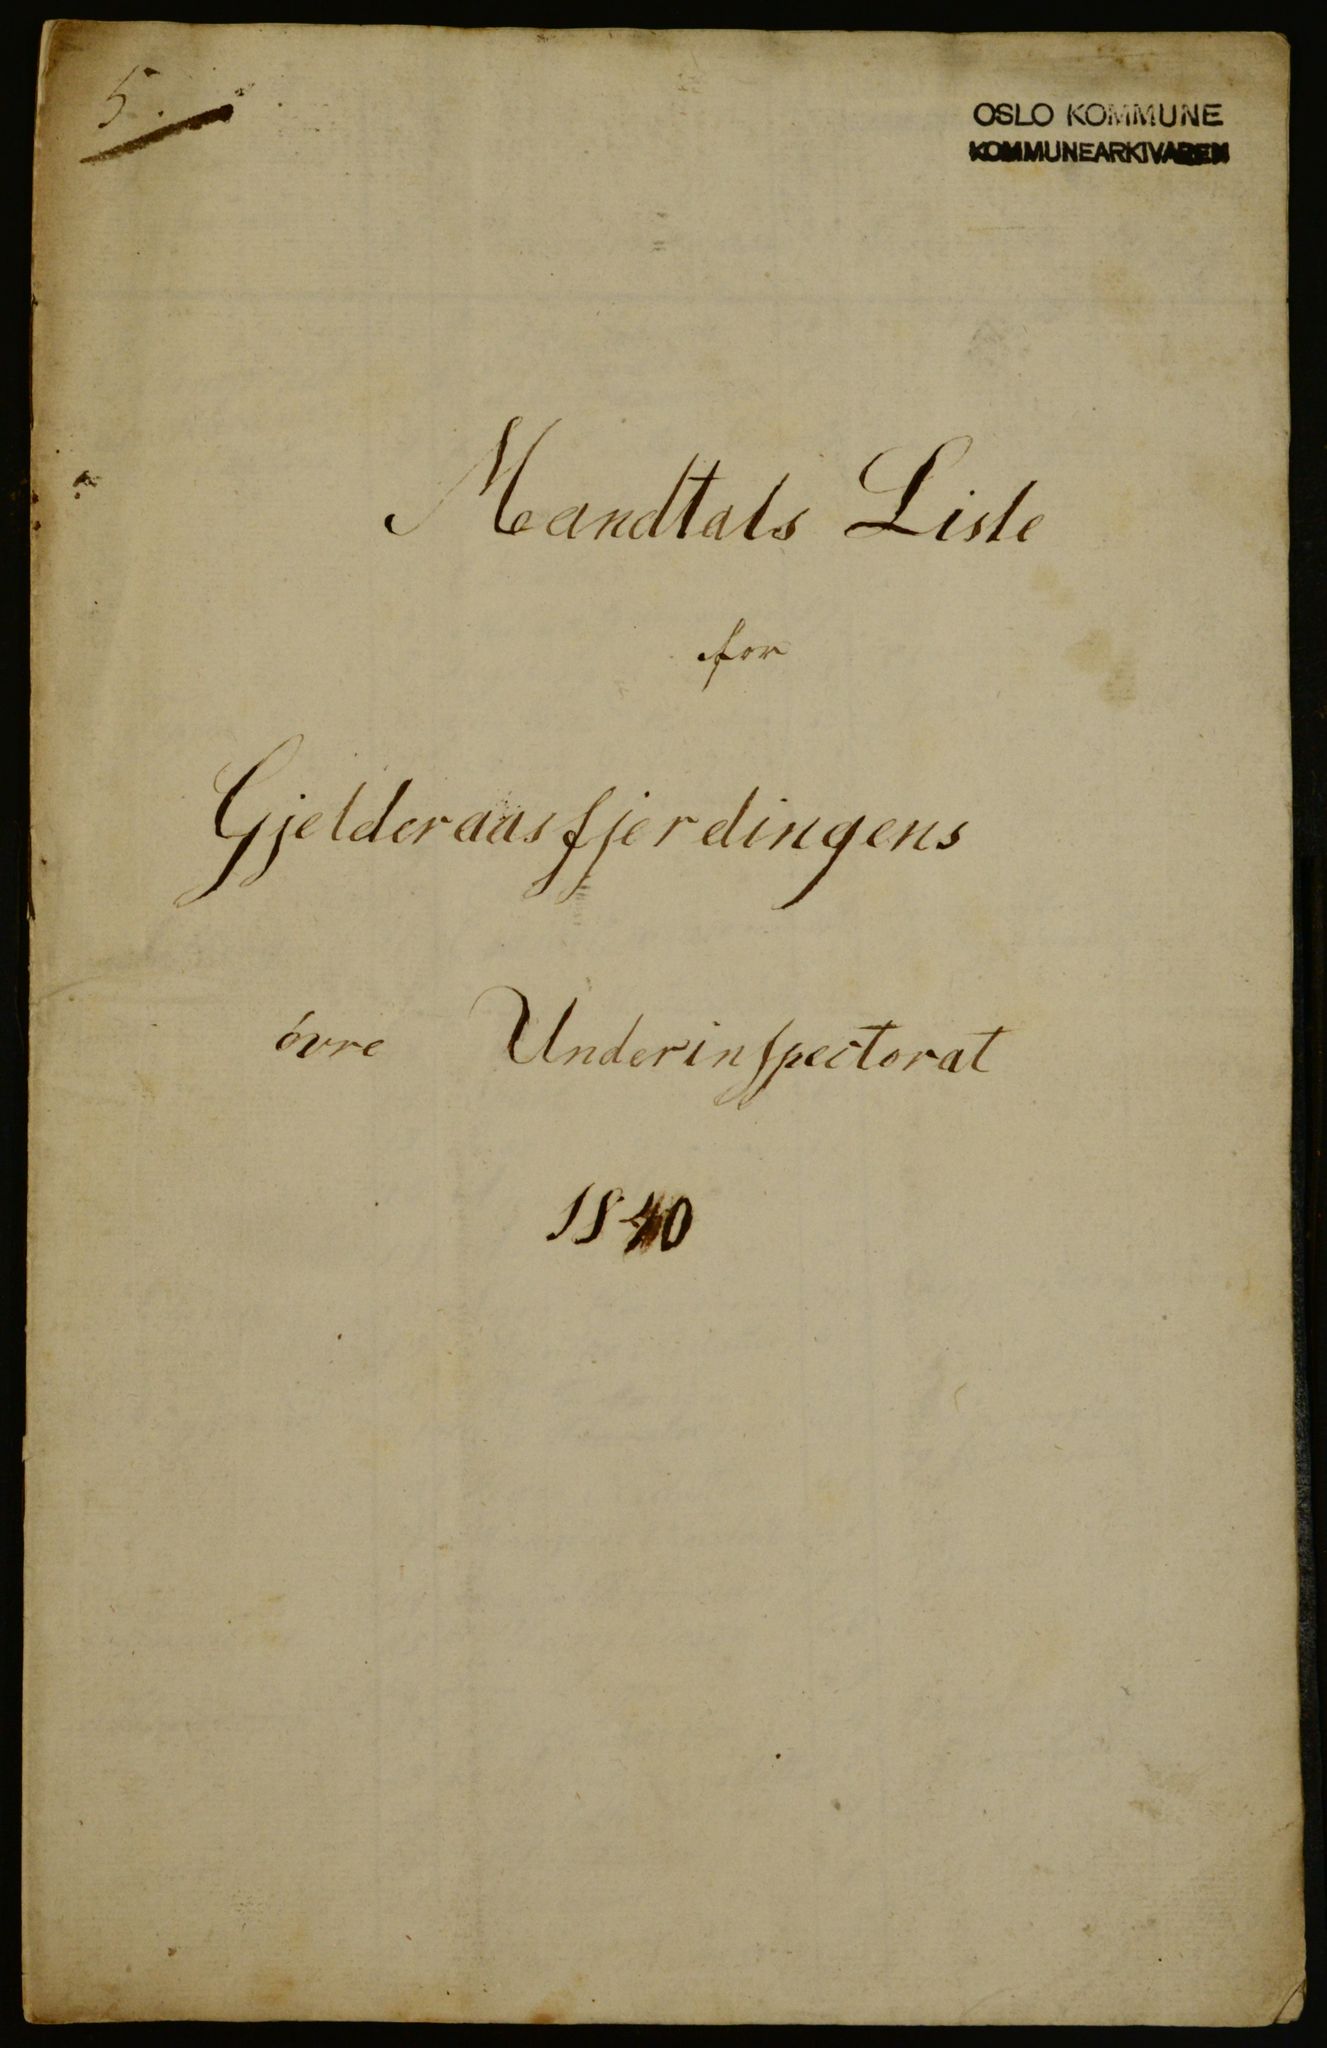 5.
OSLO KOMMUNE
KOMMUNEARKIVAREN
Mandtals Liste
for
Gjelderaasfjerdingens
övre Underinspectorat
1840